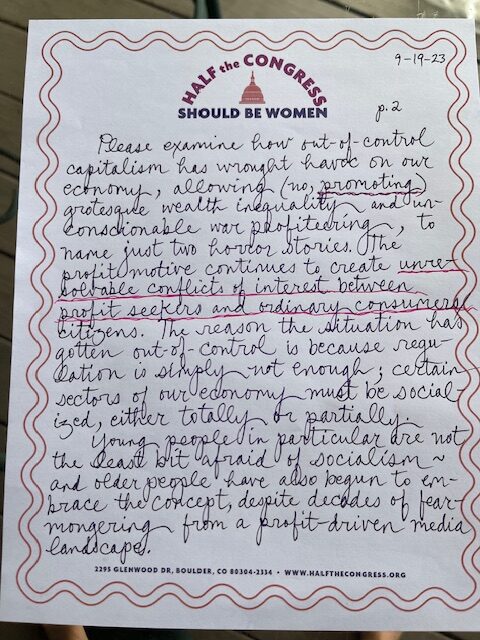 9-19-23
HALF the CONGRESS
SHOULD BE WOMEN
p. 2
Please examine how out-of-control
capitalism has wrought havoc on our
economy, allowing (no, promoting)
grotesque wealth inequality and un-
conscionable war profiteering, to
name just two horror stories. The
profit motive continues to create unre-
solvable conflicts of interest between
profit seekers and ordinary consumers/
citizens. The reason the situation has
gotten out-of-control is because regu-
lation is simply not enough; certain
sectors of our economy must be social-
ized, either totally or partially.
Young people in particular are not
the least bit afraid of socialism ~
and older people have also begun to em-
brace the concept, despite decades of fear-
mongering from a profit-driven media
landscape.
2295 GLENWOOD DR, BOULDER, CO 80304-2334 • WWW.HALFTHECONGRESS.ORG